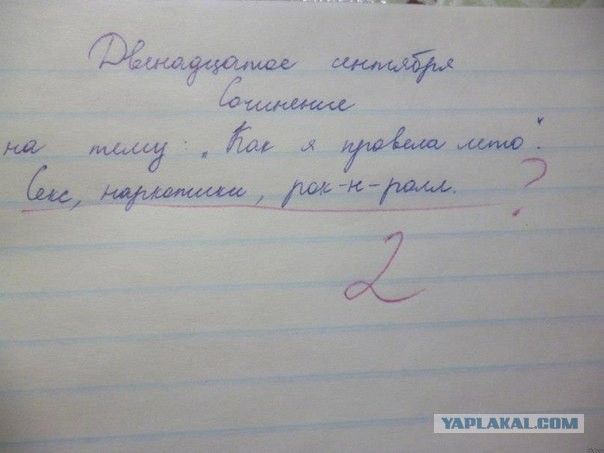 Двенадцатое сентября
Сочинение
на тему: „Как я провела лето".
Секс, наркотики, рок-н-ролл. ?
2
YAPLAKAL.COM